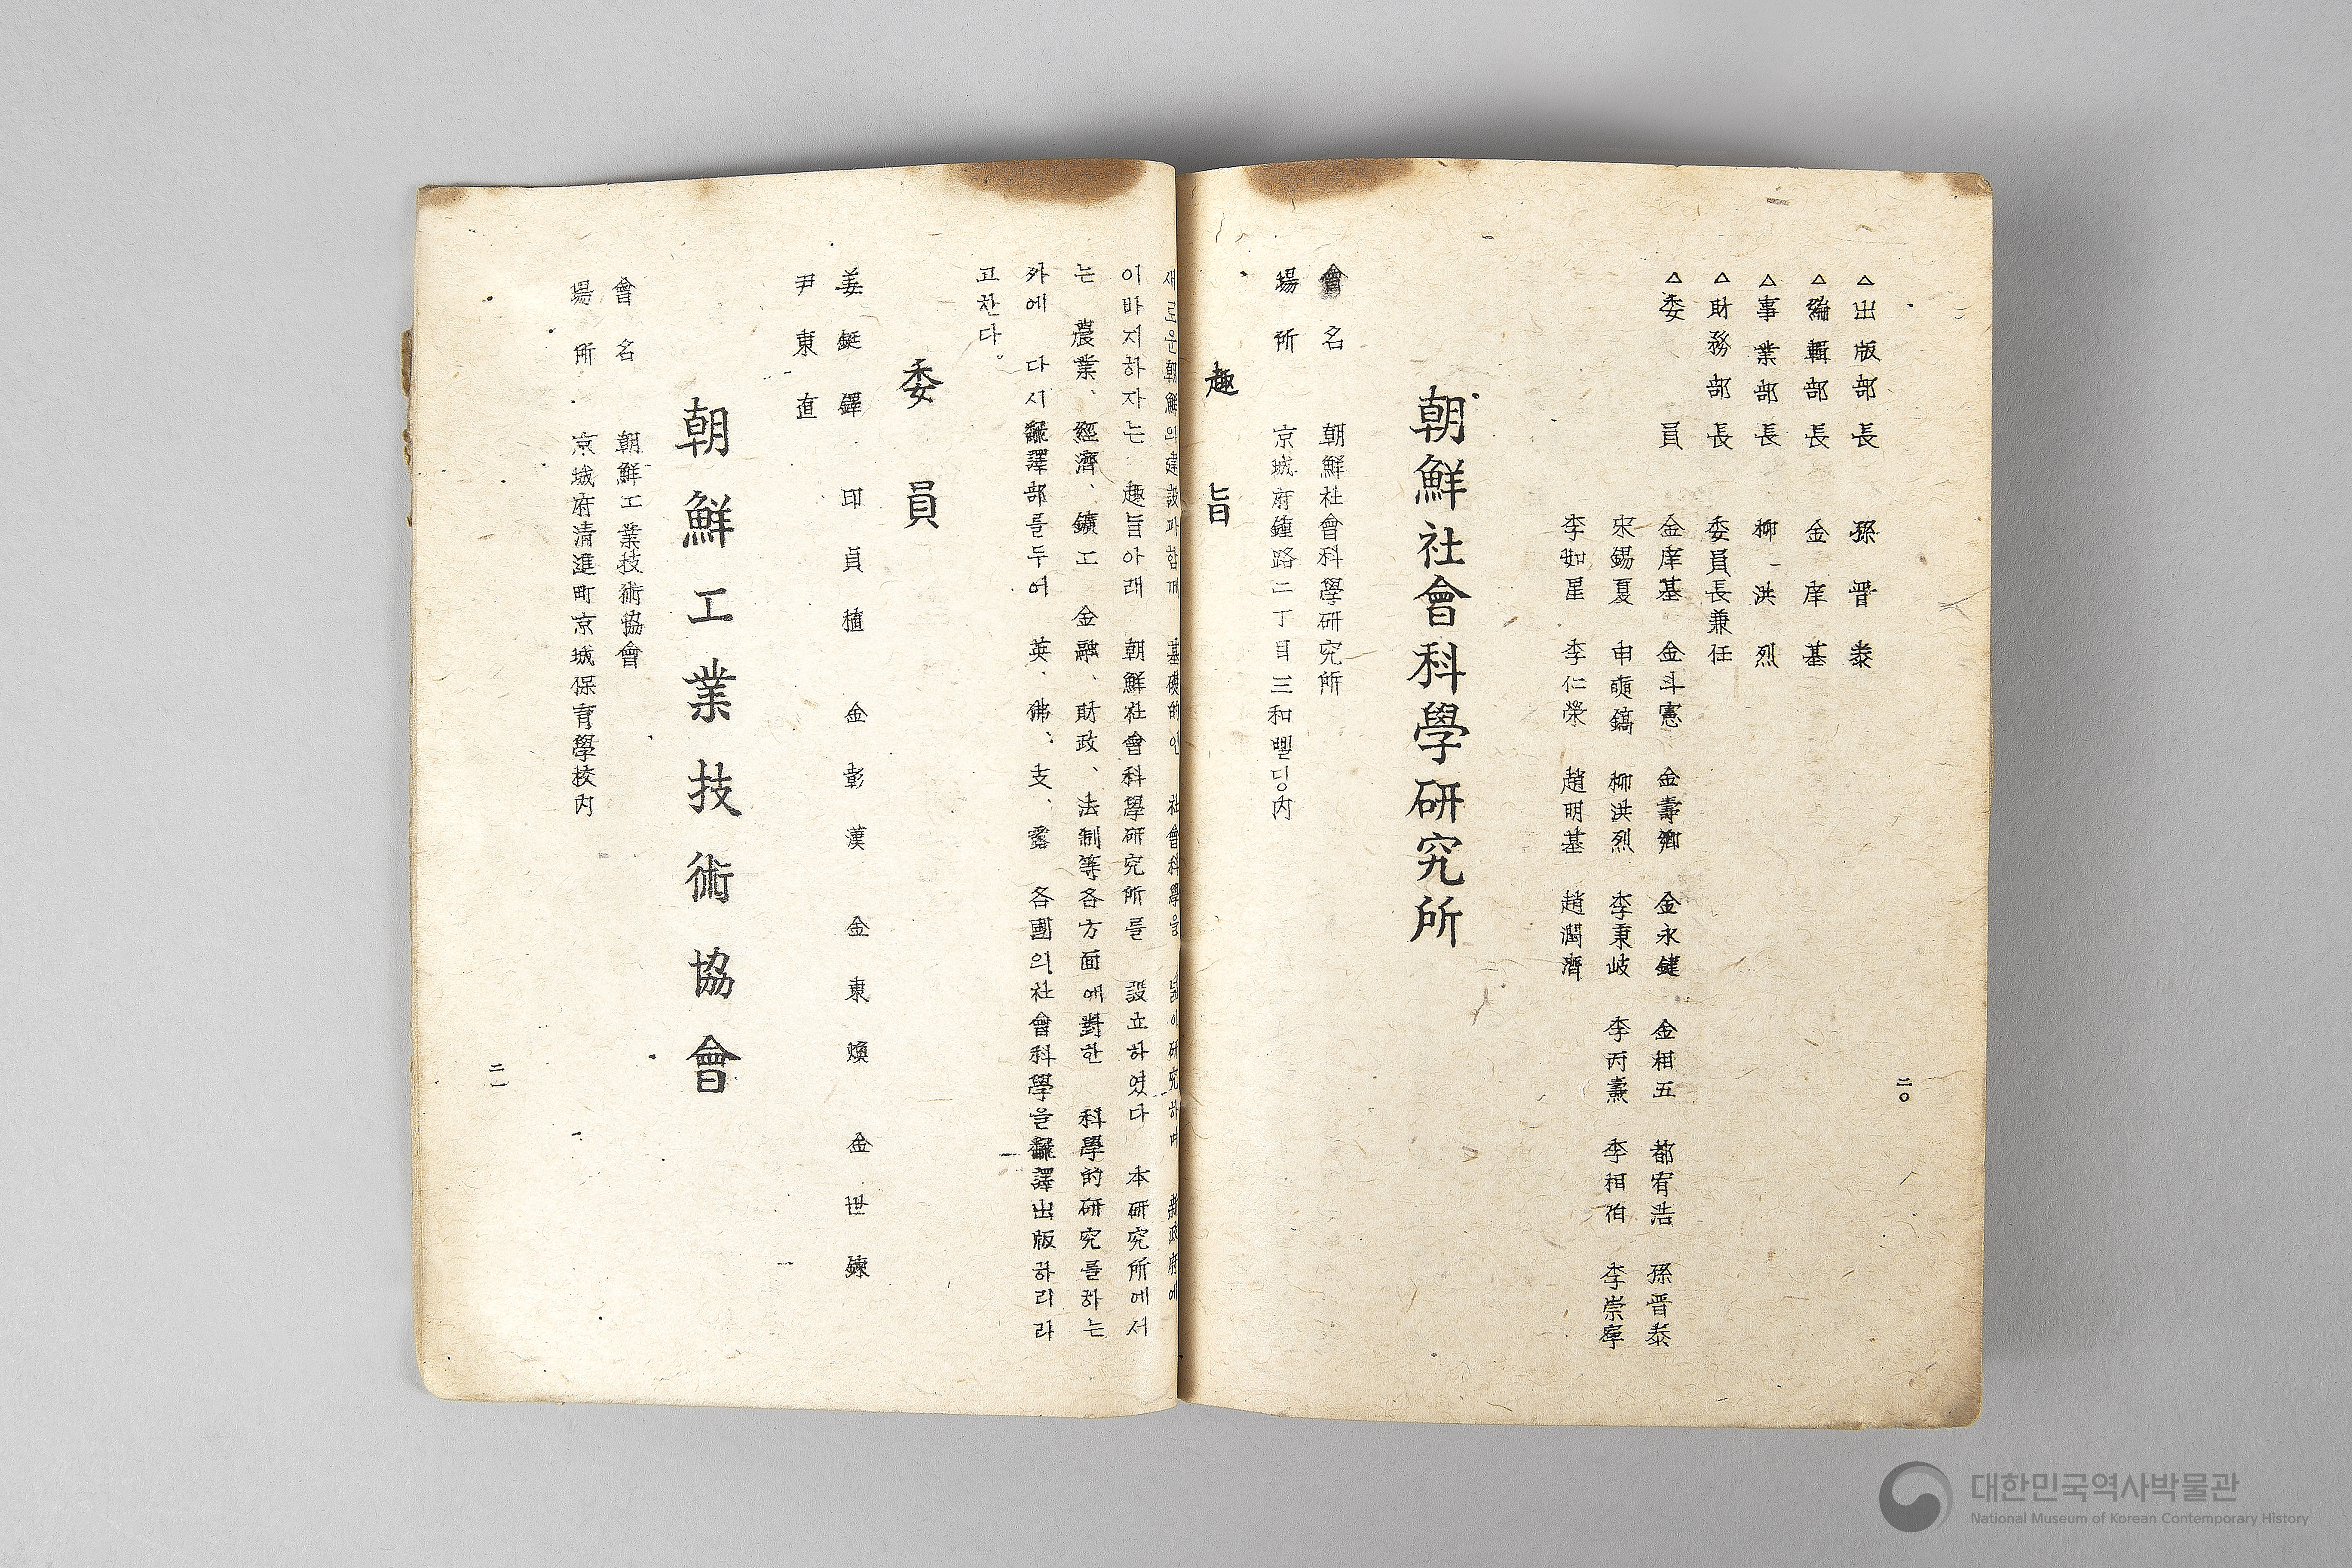 △出版部長 孫晋泰
△編輯部長 金庠基
△事業部長 柳洪烈
△財務部長 委員長兼任
△委員 金庠基 金斗憲 金壽卿 金永鍵 金相五 都宥浩 孫晋泰
宋錫夏 申奭鎬 柳洪烈 李秉岐 李丙燾 李相佰 李崇寧
李如星 李仁榮 趙明基 趙潤濟
朝鮮社會科學研究所
會名 朝鮮社會科學研究所
場所 京城府鍾路二丁目三和삘딍內
趣旨
二〇
새로운朝鮮의建設과함께 基礎的인 社會科學을 넓이硏究하며 新政府에
이바지하자는 趣旨아래 朝鮮社會科學研究所를 設立하였다 本研究所에서
는 農業、經濟、鑛工 金融、財政、法制等各方面에對한 科學的研究를하는
外에 다시飜譯部를두어 英、佛、支、露 各國의社會科學을飜譯出版하리라
고찬다。
委員
姜鋌鐸 印貞植 金彰漢 金東煥 金世鍊
尹東直
朝鮮工業技術協會
會名 朝鮮工業技術協會
場所 京城府淸進町京城保育學校內
二一
대한민국역사박물관
National Museum of Korean Contemporary History